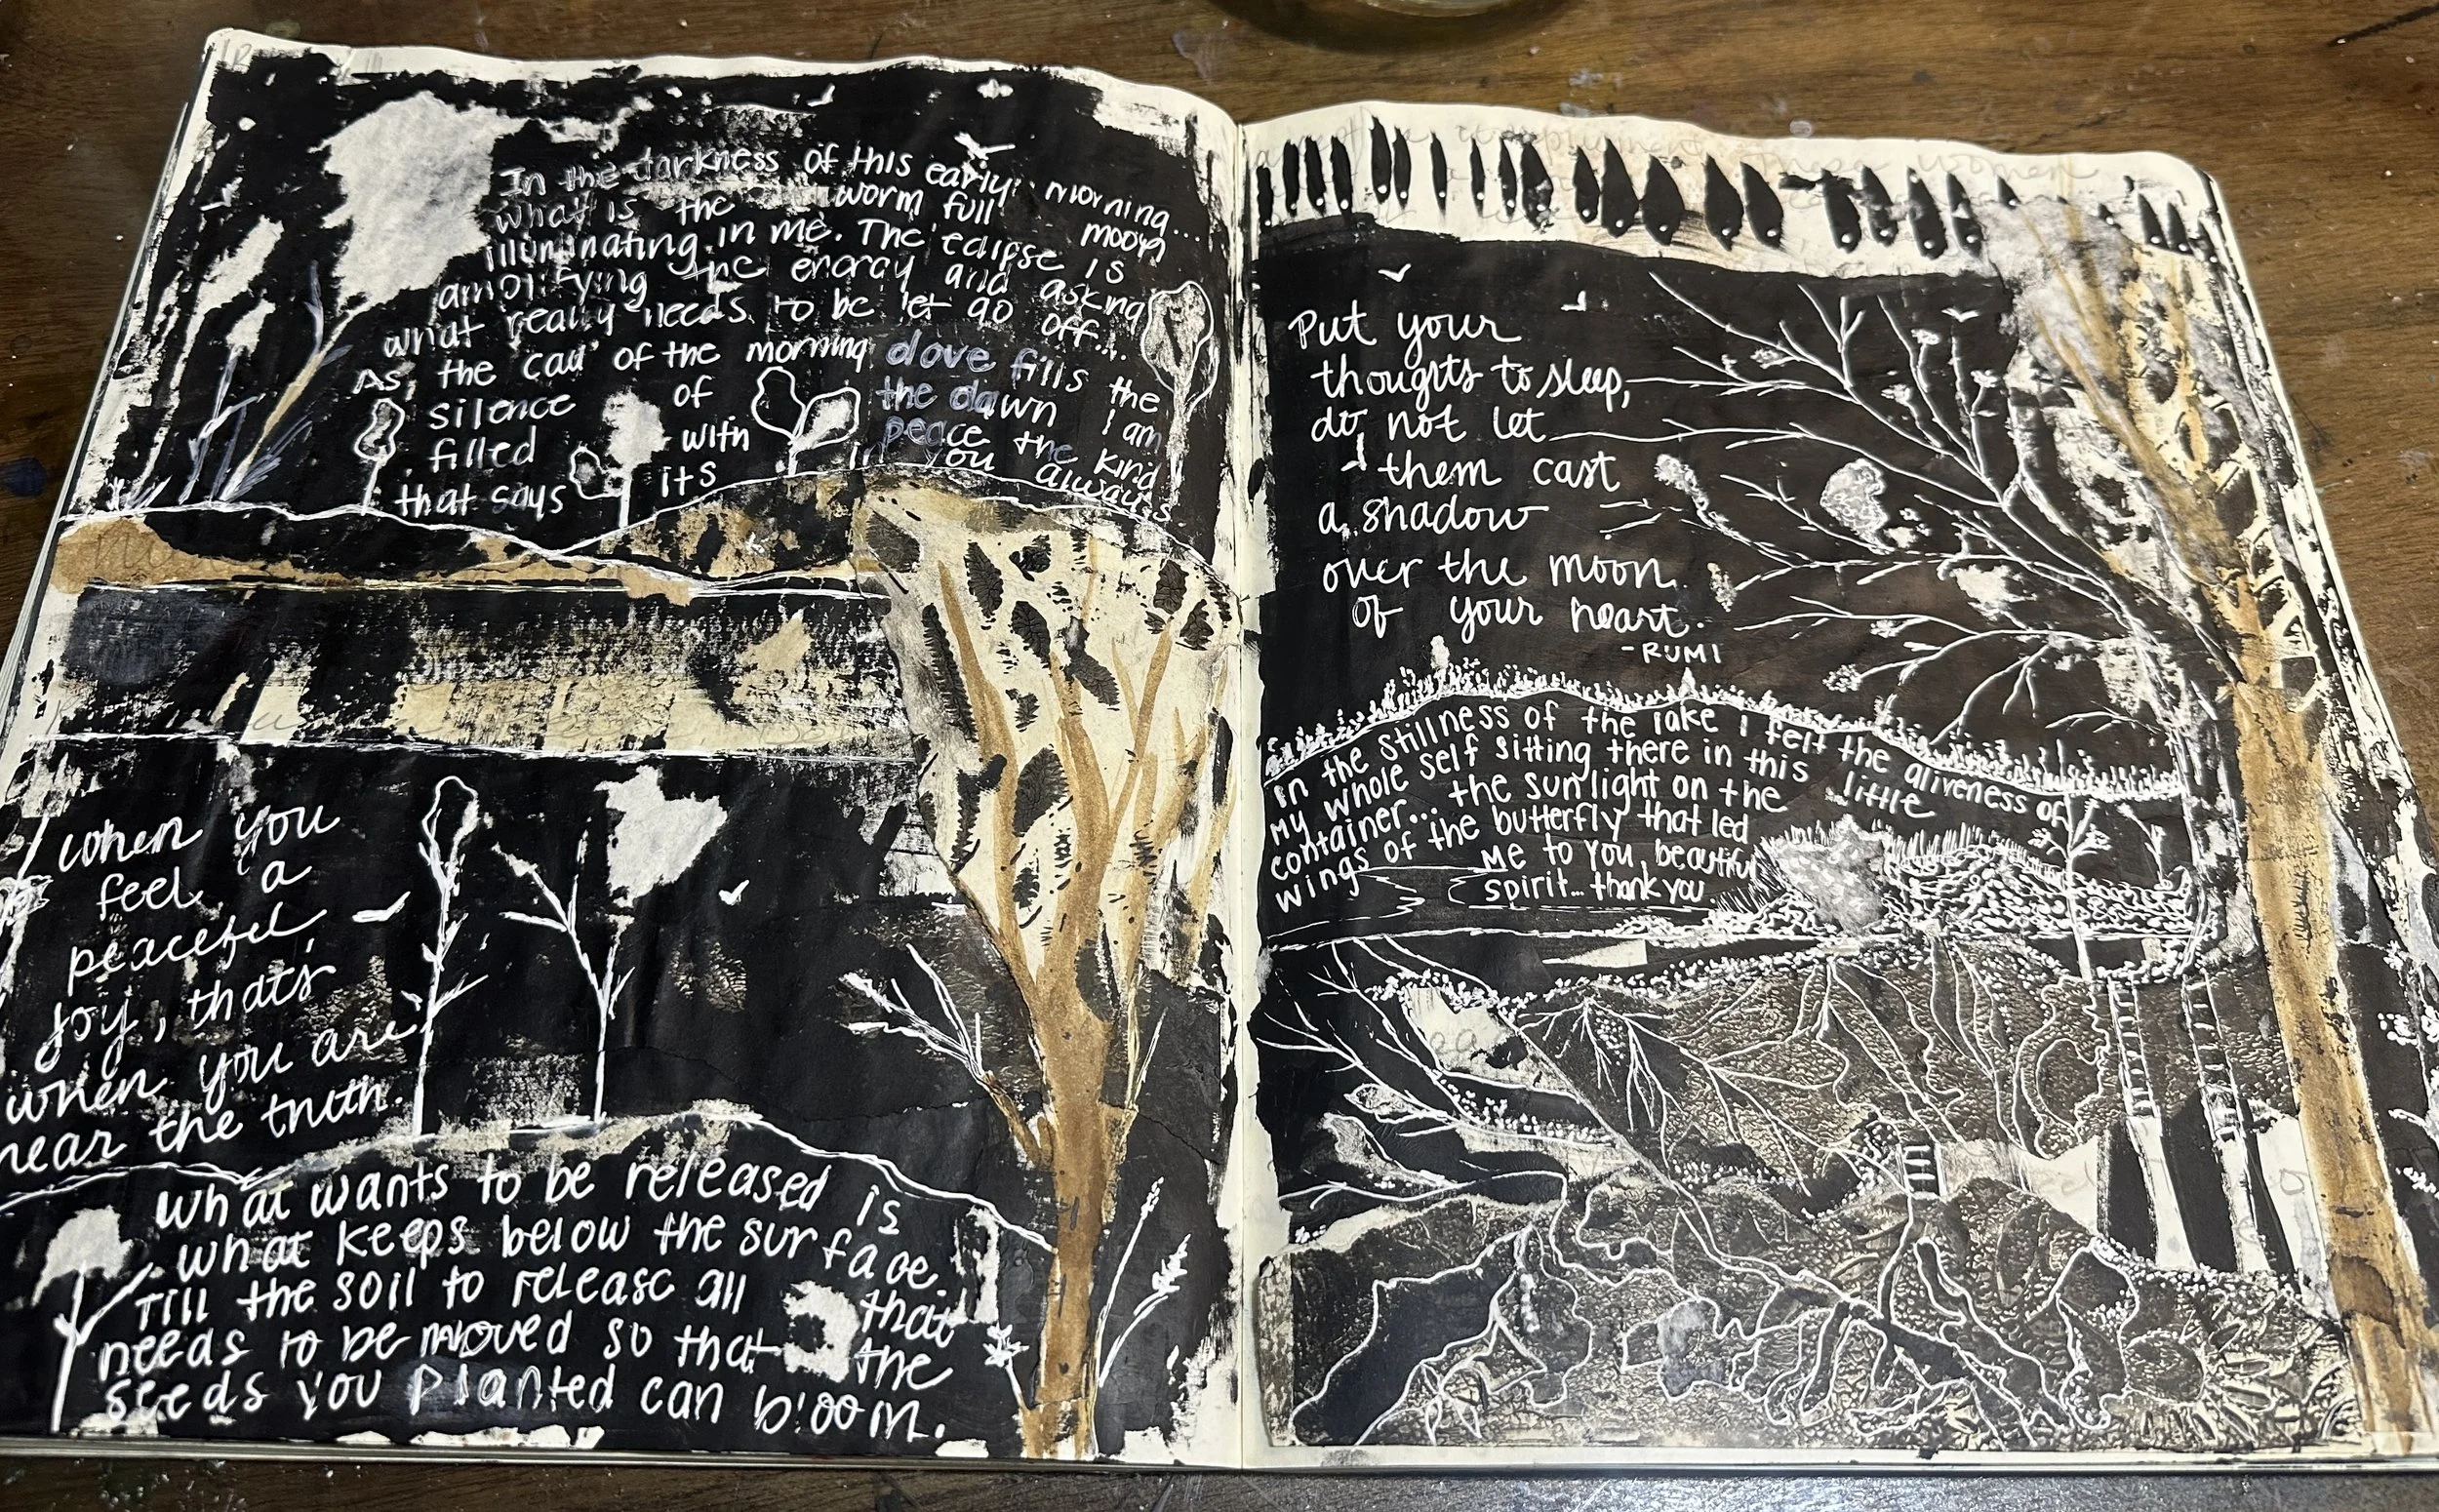 In the darkness of this early morning...
what is the worm full moon
illuminating in me. The eclipse is
amplifying the energy and asking
what really needs to be let go off...
As, the call of the morning dove fills the
silence of the dawn I am
filled with peace the kind
that says its in you always
When you
feel a
peaceful
joy, thats
when you are
near the truth.
What wants to be released is
what keeps below the surface.
Till the soil to release all that
needs to be moved so that the
seeds you planted can bloom.
Put your
thoughts to sleep,
do not let
them cast
a shadow
over the moon
of your heart.
-RUMI
In the stillness of the lake I felt the aliveness of
my whole self sitting there in this little
container... the sunlight on the
wings of the butterfly that led
me to you, beautiful
spirit... thank you